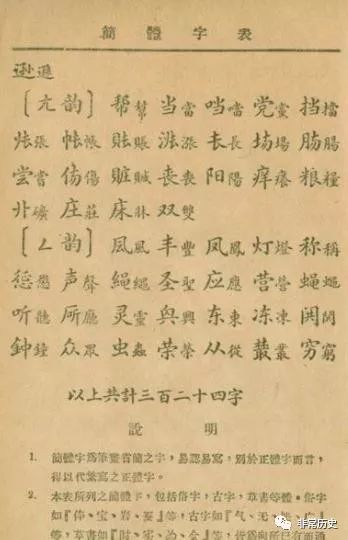 簡體字表
逊遜
〔ㄤ韵〕 帮幫 当當 噹 党黨 挡擋
张張 帐帳 账賬 涨漲 长長 场場 肠腸
尝嘗 伤傷 赃贓 丧喪 阳陽 痒癢 粮糧
卝礦 庄莊 床牀 双雙
〔ㄥ韵〕 凨風 丰豐 凤鳳 灯燈 称稱
惩懲 声聲 绳繩 圣聖 应應 营營 蝇蠅
听聽 廳 灵靈 興 东東 冻凍 鬨
鐘 众眾 虫蟲 荣榮 从從 叢 穷窮
以上共計三百二十四字
說明
1. 簡體字為筆畫省簡之字,易認易寫,別於正體字而言,
得以代繁寫之正體字。
2. 本表所列之簡體字,包括俗字,古字,草書等體。俗字
如『体、宝、岩、蚕』等,古字如『气、无、
等,草書如『时、实、为、会』等,皆為向所已有而通
非常历史